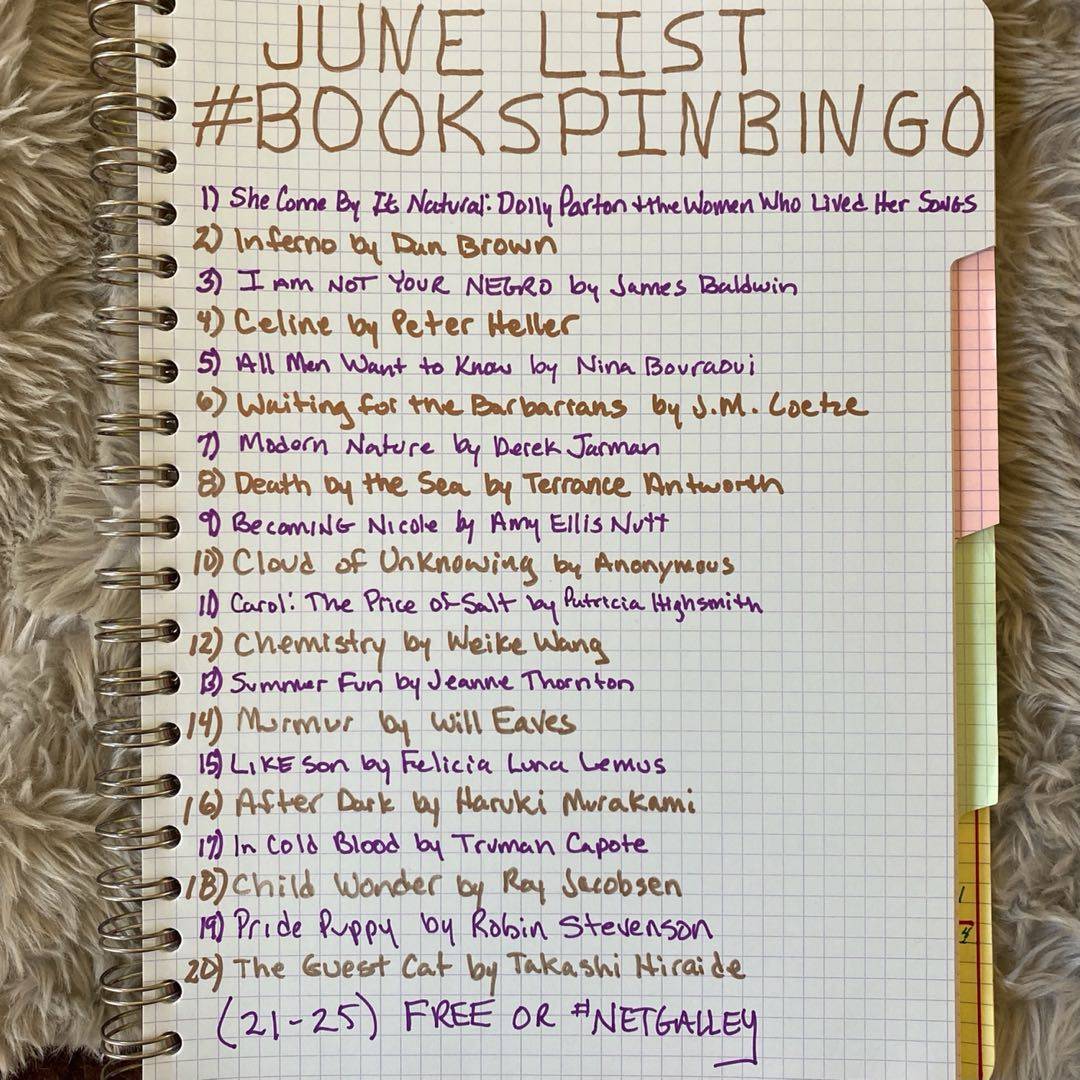 JUNE LIST
#BOOKSPINBINGO
1) She Come By It Natural: Dolly Parton + the Women Who Lived Her Songs
2) Inferno by Dan Brown
3) I AM NOT YOUR NEGRO by James Baldwin
4) Celine by Peter Heller
5) All Men Want to Know by Nina Bouraoui
6) Waiting for the Barbarians by J.M. Coetze
7) Modern Nature by Derek Jarman
8) Death by the Sea by Terrance Antworth
9) Becoming Nicole by Amy Ellis Nutt
10) Cloud of Unknowing by Anonymous
11) Carol: The Price of Salt by Patricia Highsmith
12) Chemistry by Weike Wang
13) Summer Fun by Jeanne Thornton
14) Murmur by Will Eaves
15) LIKE Son by Felicia Luna Lemus
16) After Dark by Haruki Murakami
17) In Cold Blood by Truman Capote
18) Child Wonder by Roy Jacobsen
19) Pride Puppy by Robin Stevenson
20) The Guest Cat by Takashi Hiraide
(21-25) FREE OR #NETGALLEY